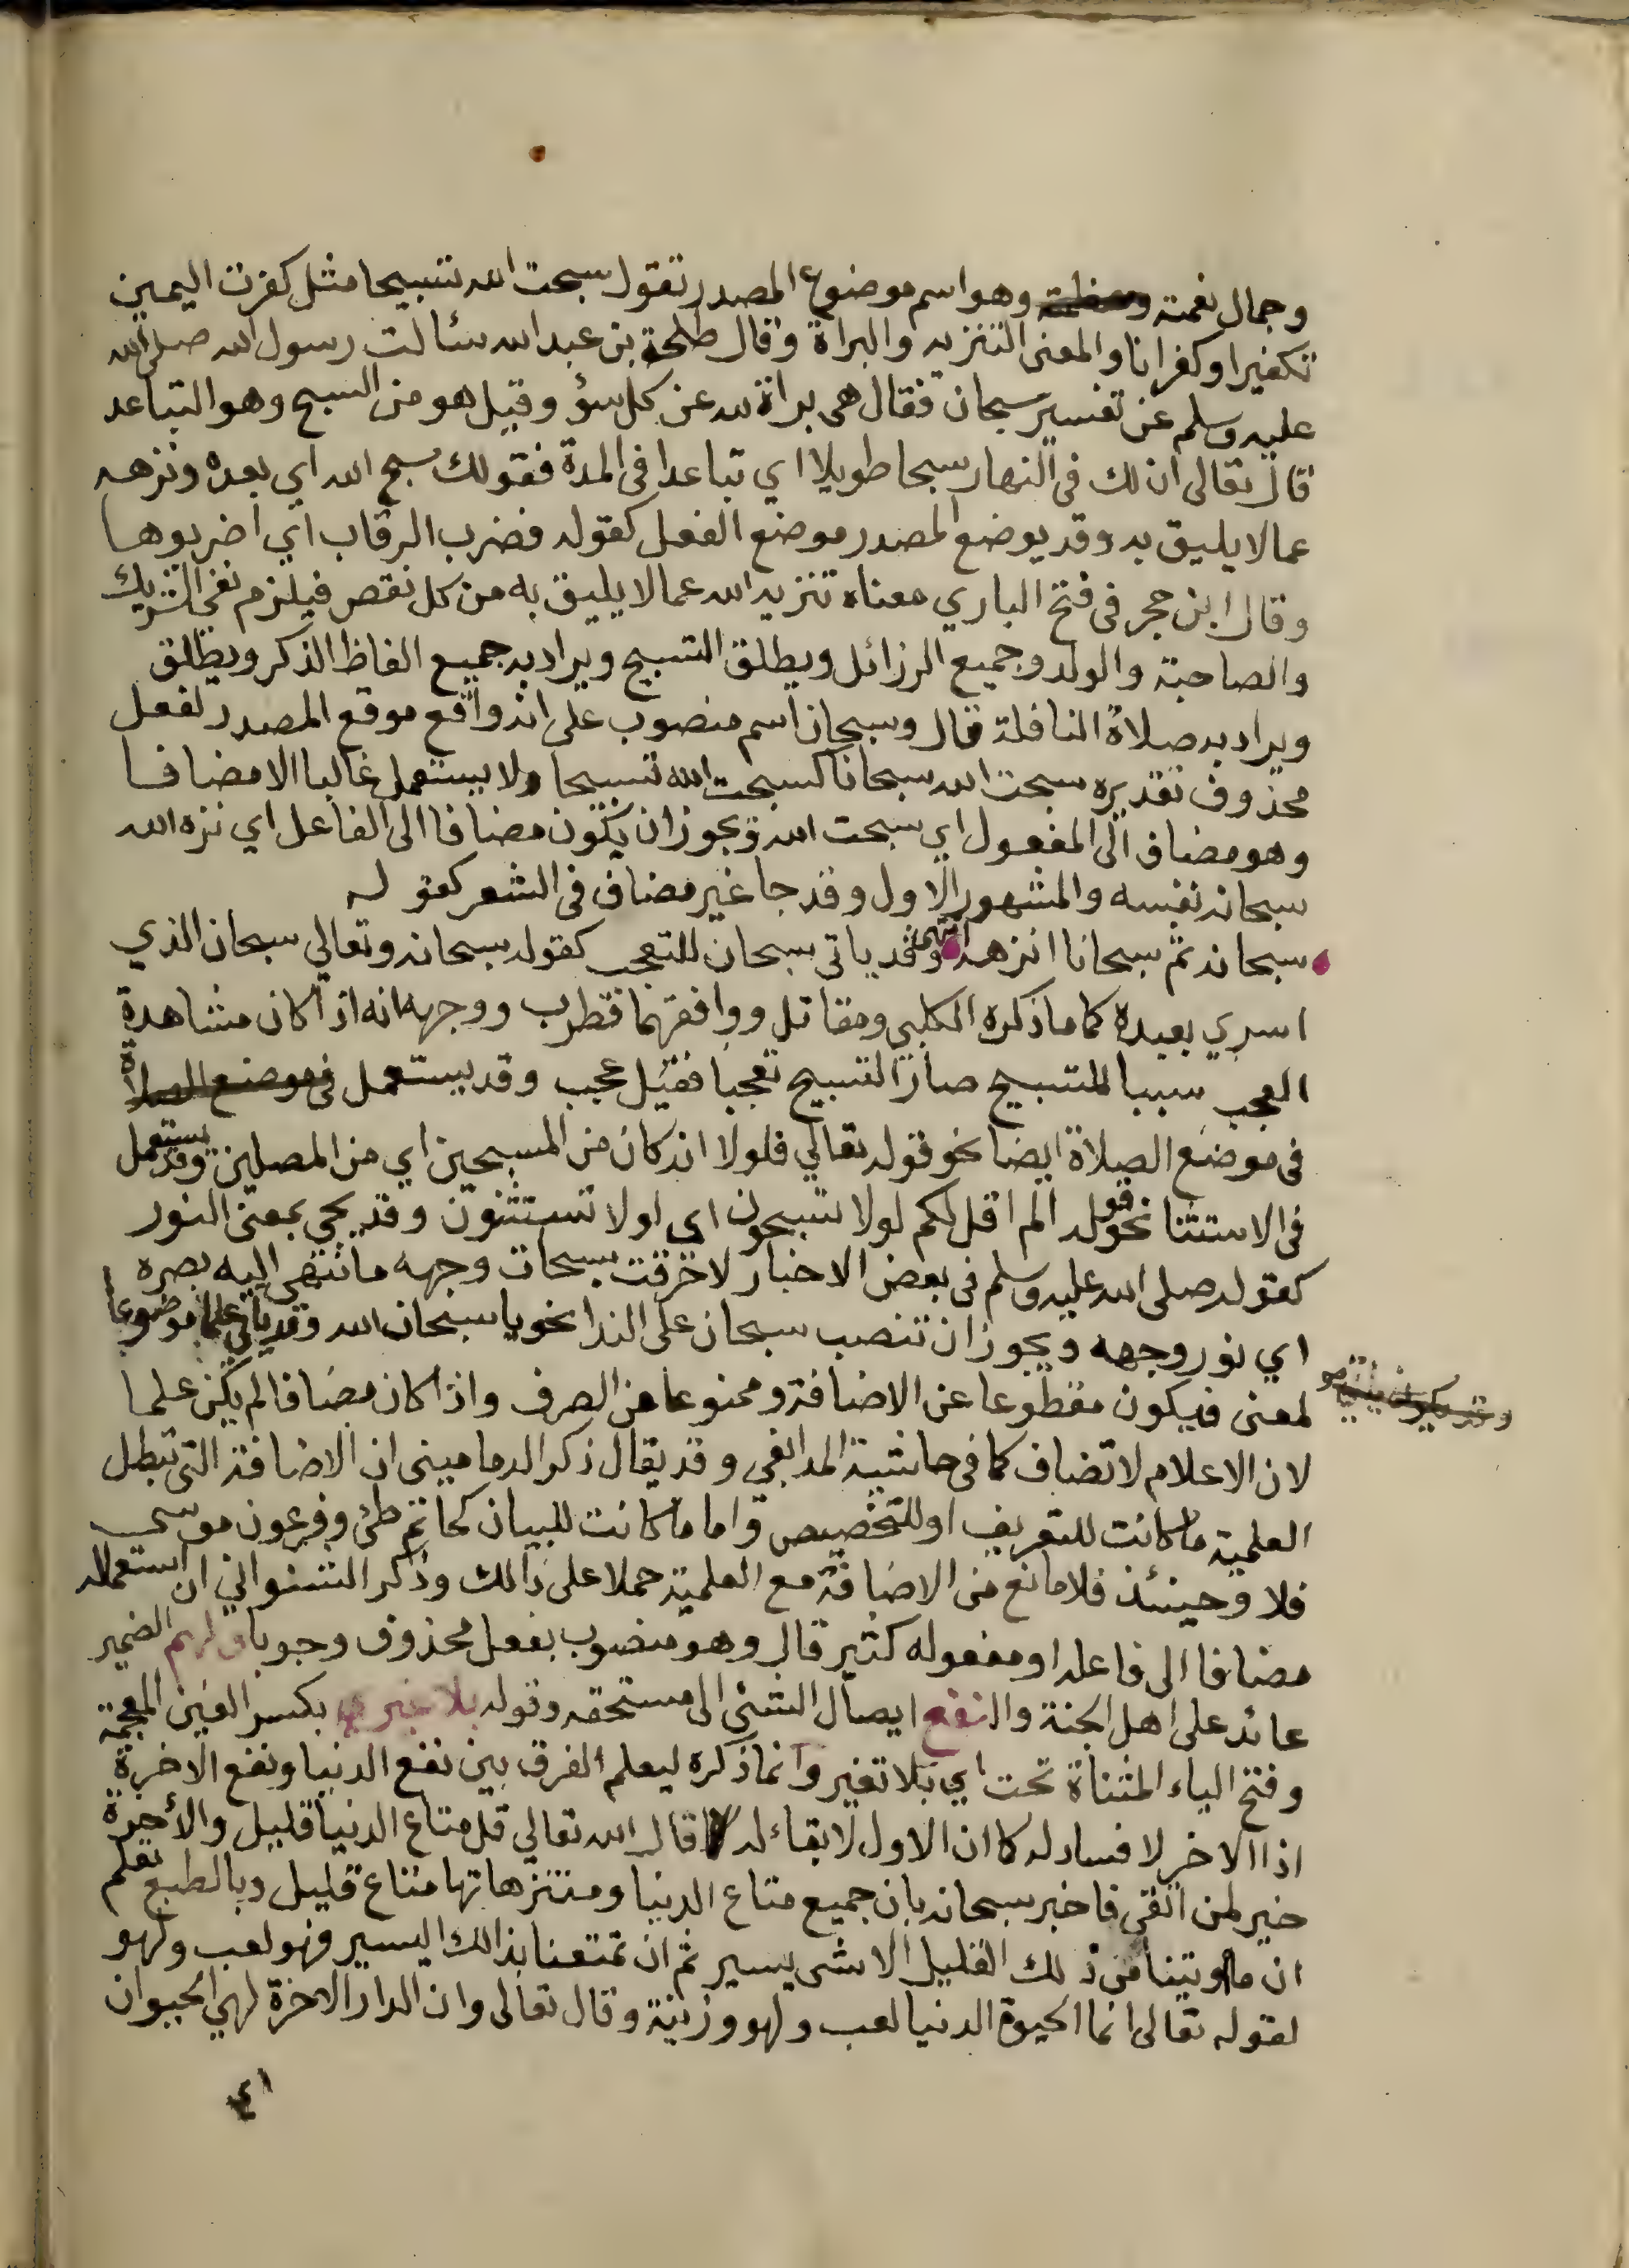 وجمال نعمته وعظمته وهو اسم موضوع المصدر تقول سبحت الله تسبيحا مثل كفرت اليمين
تكفيرا وكفرانا والمعنى التنزيه والبراة وقال طلحة بن عبد الله سئالت رسول الله صلى الله
عليه وسلم عن تفسير سبحان فقال هى براة لله عن كل سؤ وقيل هو من السبح وهو التباعد
قال تعالى ان لك فى النهار سبحا طويلا اي تباعدا فى المدة فقولك سبح الله اي بعده ونزهه
عما لا يليق به وقد يوضع المصدر موضع الفعل كقوله فضرب الرقاب اي اضربوها
وقال ابن حجر فى فتح الباري معناه تنزيه الله عما لا يليق به من كل نقص فيلزم نفى الشريك
والصاحبة والولد وجميع الرزائل ويطلق التسبيح ويراد به جميع الفاظ الذكر ويطلق
ويراد به صلاة النافلة قال وسبحان اسم منصوب على انه واقع موقع المصدر لفعل
محذوف تقديره سبحت الله سبحانا كسبحت الله تسبيحا ولا يستعمل غالبا الا مضافا
وهو مضاف الى المفعول اي سبحت الله ويجوز ان يكون مضافا الى الفاعل اي نزه الله
سبحانه نفسه والمشهور الاول وقد جا غير مضاف فى الشعر كقوله
سبحانه ثم سبحانا انزهه انتهى وقد ياتى سبحان للتعجب كقوله سبحانه وتعالي سبحان الذي
اسري بعبده كما ما ذكره الكلبى ومقاتل ووافقهما قطرب ووجهه انه اذا كان مشاهدة
العجب سببا للتسبيح صار التسبيح تعجبا فقيل عجب وقد يستعمل فى موضع الصلاة
فى موضع الصلاة ايضا نحو قوله تعالي فلولا انه كان من المسبحين اي من المصلين وقد يستعمل
فى الاستثنا نحو قوله الم اقل لكم لولا تسبحون اى لولا تستثنون وقد يجي بمعنى النور
كقوله صلى الله عليه وسلم فى بعض الاخبار لاحرقت سبحات وجهه ما انتهى اليه بصره
اي نور وجهه ويجوز ان تنصب سبحان على الندا نحو يا سبحان الله وقد ياتي علما موضوعا
لمعنى فيكون مقطوعا عن الاضافة وممنوعا من الصرف واذا كان مضافا لم يكن علما
وقد يكون
لان الاعلام لا تضاف كما فى حاشية المدابغى وقد يقال ذكر الدمامينى ان الاضافة التى تبطل
العلمية ما كانت للتعريف او للتخصيص واما ما كانت للبيان كحاتم طئ وفرعون موسى
فلا وحينئذ فلا مانع من الاضافة مع العلمية حملا على ذالك وذكر الشنوالي ان استعماله
مضافا الى فاعله او مفعوله كثير قال وهو منصوب بفعل محذوف وجوبا الضمير
عائد على اهل الجنة والنفع ايصال الشئ الى مستحقه وقوله بلا غير بكسر الغين المعجمة
وفتح الياء المثناة تحت اي بلا تغير وانما ذكره ليعلم الفرق بين نفع الدنيا ونفع الاخرة
اذا الاخر لا فساد له كما ان الاول لا بقاء له قال الله تعالي قل متاع الدنيا قليل والأخرة
خير لمن اتقى فاخبر سبحانه بان جميع متاع الدنيا ومتنزهاتها متاع قليل وبالطبع تعلم
ان ما اوتينا من ذلك القليل الا شى يسير ثم ان تمتعنا بذالك اليسير فهو لعب ولهو
لقوله تعالى انما الحيوة الدنيا لعب ولهو وزينة وقال تعالى وان الدار الاخرة لهي الحيوان